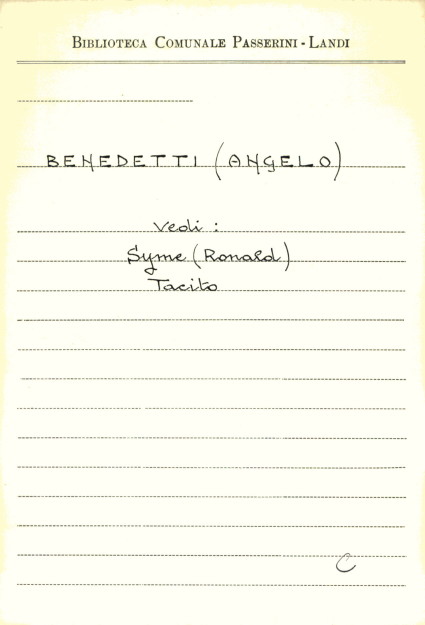 BIBLIOTECA COMUNALE PASSERINI - LANDI
BENEDETTI (ANGELO)
Vedi :
Syme (Ronald)
Tacito
C